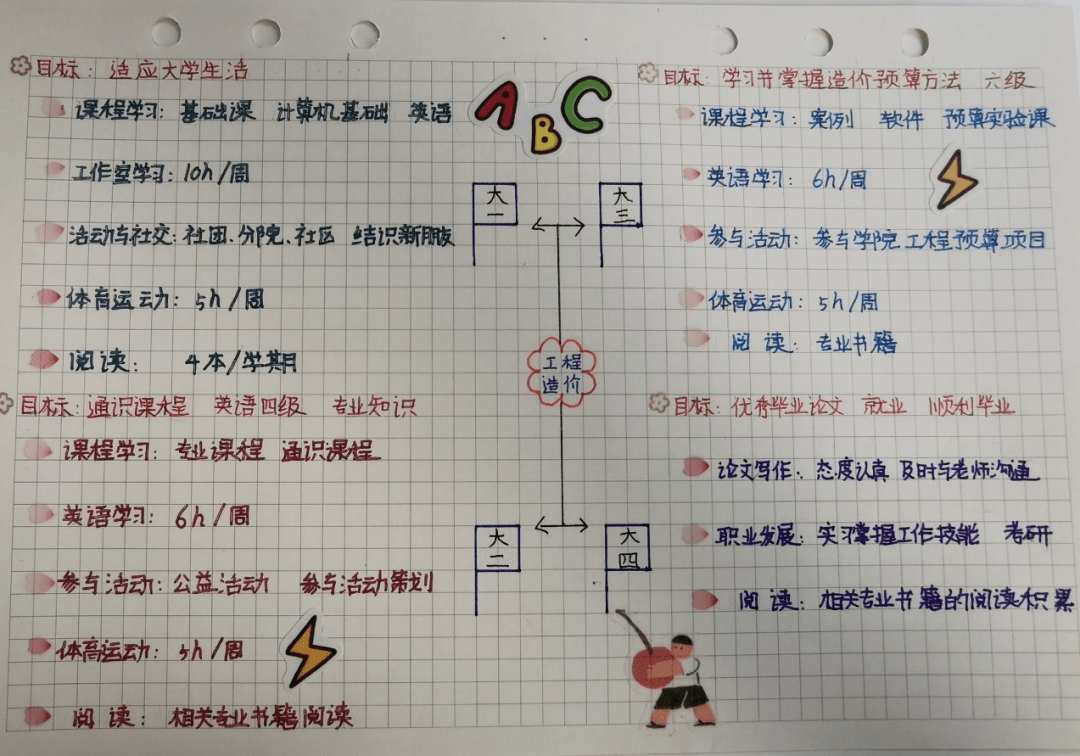 目标：适应大学生活
课程学习：基础课 计算机基础 英语
工作室学习：10h/周
活动与社交：社团、分院、社区 结识新朋友
体育运动：5h/周
阅读： 4本/学期
ABC
大一
大三
工程造价
大二
大四
目标：学习并掌握造价预算方法 六级
课程学习：案例 软件 预算实验课
英语学习：6h/周
参与活动：参与学院工程预算项目
体育运动：5h/周
阅读：专业书籍
目标：通识课程 英语四级 专业知识
课程学习：专业课程 通识课程
英语学习：6h/周
参与活动：公益活动 参与活动策划
体育运动：5h/周
阅读：相关专业书籍阅读
目标：优秀毕业论文 就业 顺利毕业
论文写作：态度认真 及时与老师沟通
职业发展：实习掌握工作技能 考研
阅读：相关专业书籍的阅读积累